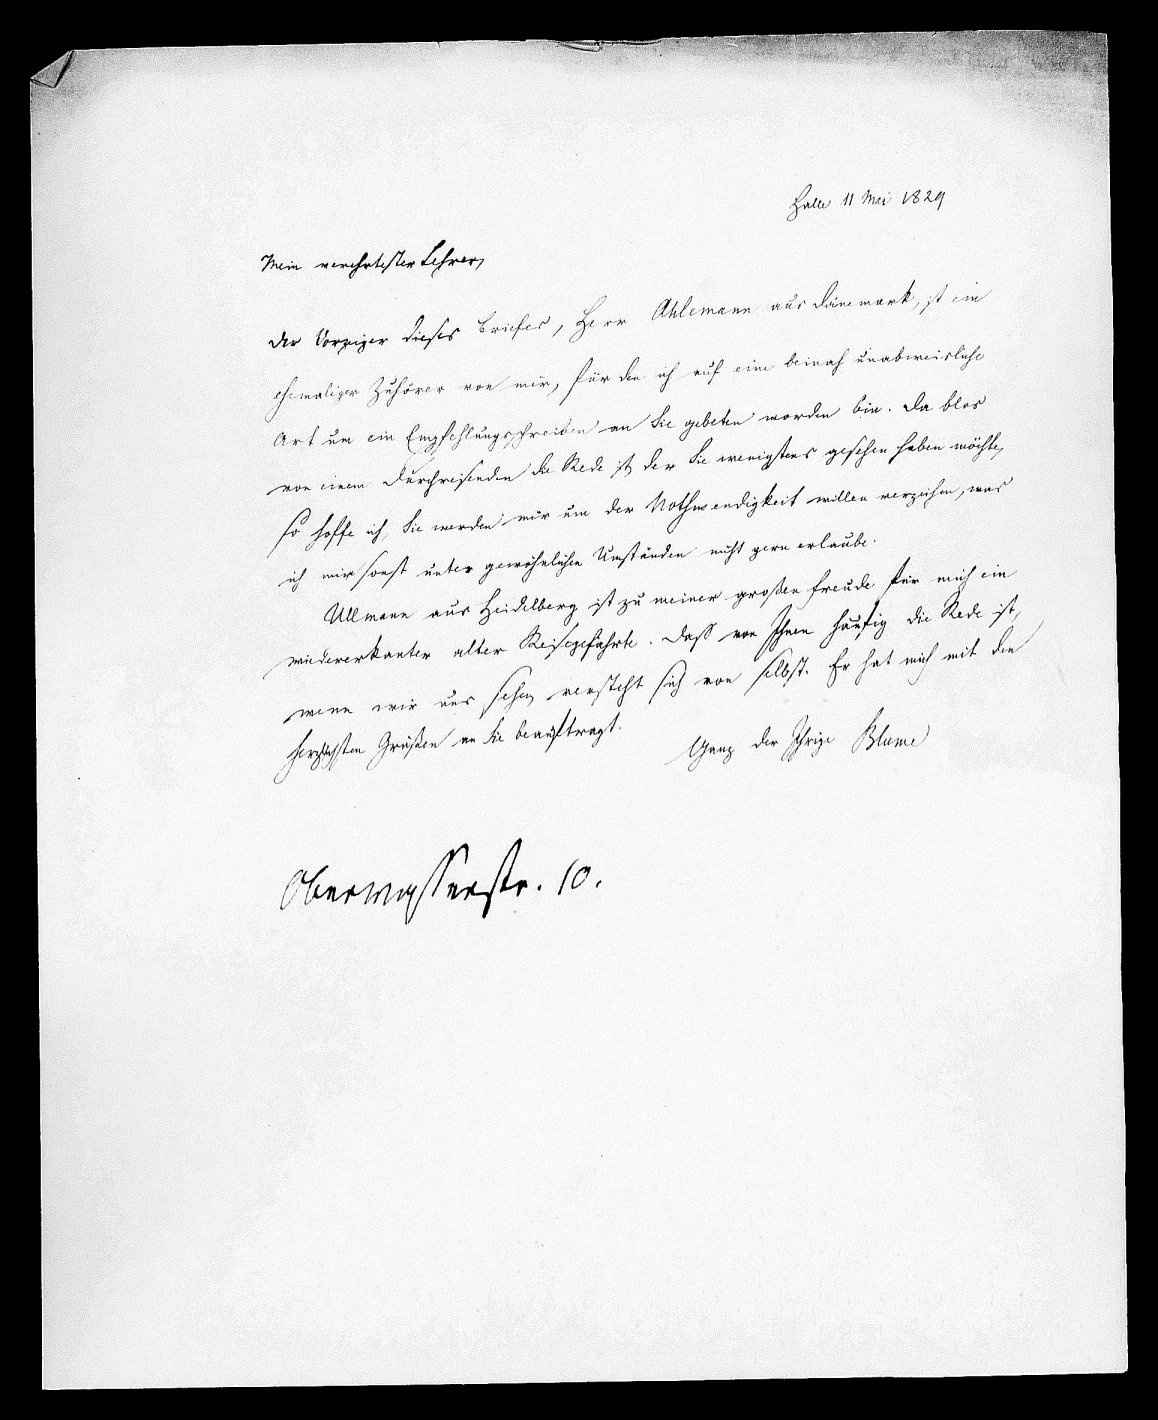 Halle 11 Mai 1829
Mein verehrtester Lehrer,
der Vorzeiger dieses Briefes, Herr Ahlemann aus Dänemark, ist ein
ehemaliger Zuhörer von mir, für den ich auf eine beinah unabweisliche
Art um ein Empfehlungsschreiben an Sie gebeten worden bin. Da blos
von einem Durchreisenden die Rede ist, der Sie wenigstens gesehen haben möchte,
so hoffe ich, Sie werden mir um der Nothwendigkeit willen verzeihen, was
ich mir sonst unter gewöhnlichen Umständen nicht gern erlaube.
Ullmann aus Heidelberg ist zu meiner großen Freude für mich ein
wiedererkanter alter Reisegefährte. Daß von Ihnen häufig die Rede ist,
wenn wir uns sehen, versteht sich von selbst. Er hat mich mit den
herzlichsten Grüßen an Sie beauftragt.
Ganz der Ihrige Blume
Oberwasserstr. 10.